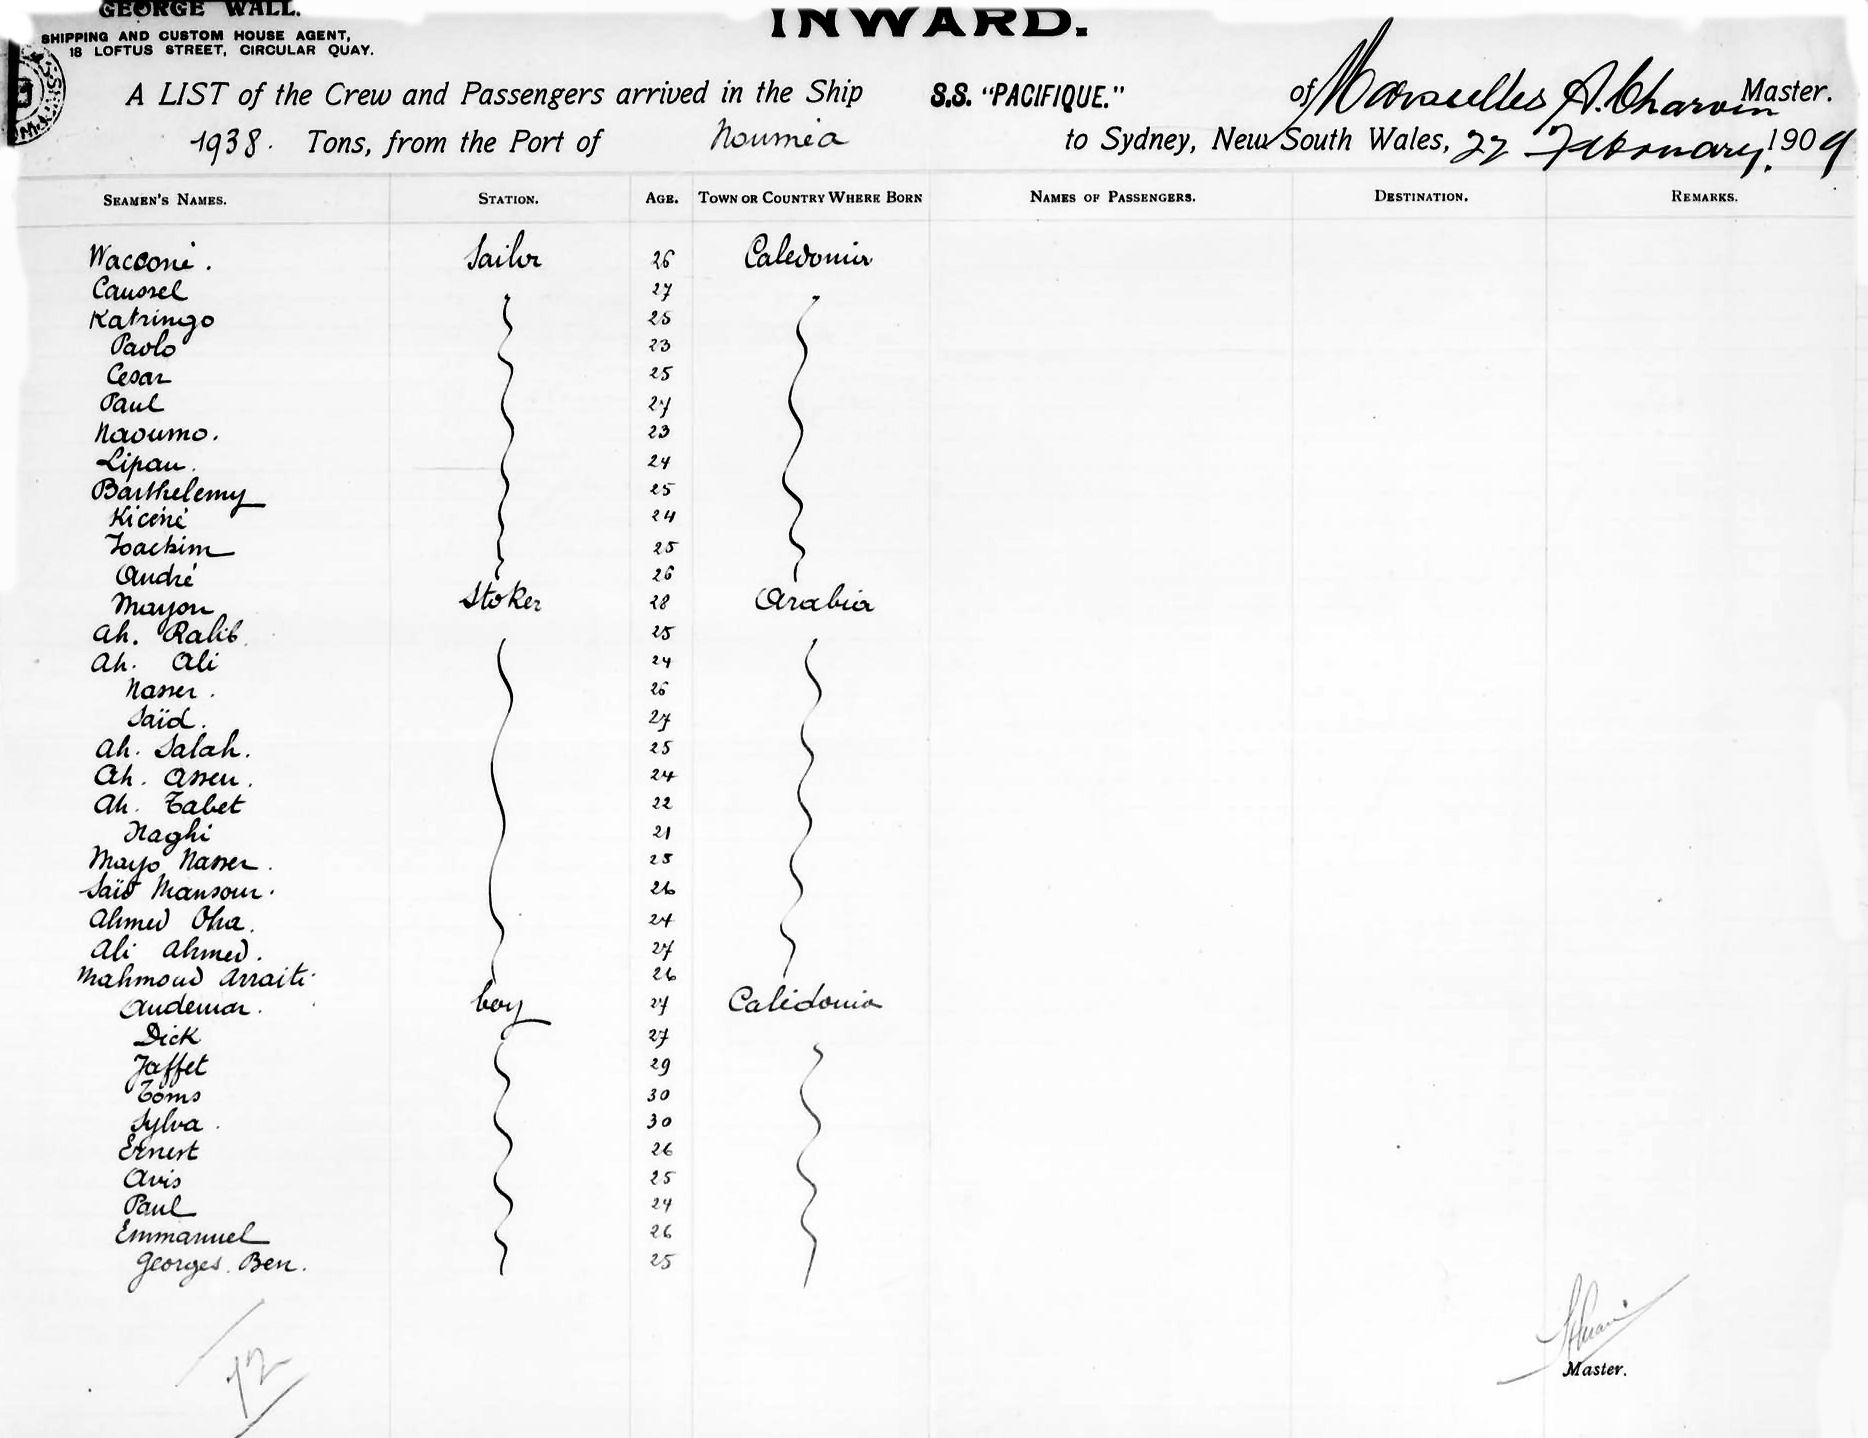 GEORGE WALL.
SHIPPING AND CUSTOM HOUSE AGENT,
18 LOFTUS STREET, CIRCULAR QUAY.
INWARD.
A LIST of the Crew and Passengers arrived in the Ship S.S. "PACIFIQUE." of Marseilles A. Charvin Master.
1938. Tons, from the Port of Nouméa to Sydney, New South Wales, 22 February, 1909
SEAMEN'S NAMES. STATION. AGE. TOWN OR COUNTRY WHERE BORN NAMES OF PASSENGERS. DESTINATION. REMARKS.
Wacconé. Sailor 26 Caledonia
Caussel 27
Katringo 25
Paolo 23
Cesar 25
Paul 27
Naoumo. 23
Lipau. 24
Barthelemy 25
Kicéné 24
Joachim 25
André 26
Mayou Stoker 28 Arabia
Ah. Ralib. 25
Ah. Ali 24
Nasser. 26
Saïd. 27
Ah. Salah. 25
Ah. Assen. 24
Ah. Tabet 22
Naghi 21
Mayo Nasser. 25
Saïd Mansour. 26
Ahmed Oha. 24
Ali Ahmed. 27
Mahmoud Arraiti 26
Audemar. boy 27 Calédonia
Dick 27
Jaffet 29
Toms 30
Sylva. 30
Ernest 26
Avis 25
Paul 24
Emmanuel 26
Georges Ben. 25
72
Master.